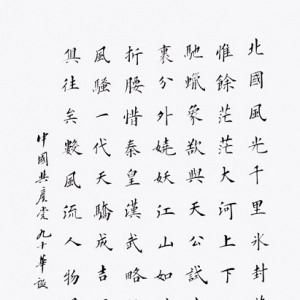 北國風光千里冰封
惟餘茫茫大河上下
馳蠟象欲與天公試
裹分外嬈妖江山如
折腰惜秦皇漢武略
風騷一代天驕成吉
俱往矣數風流人物
中國共產黨九十華誕